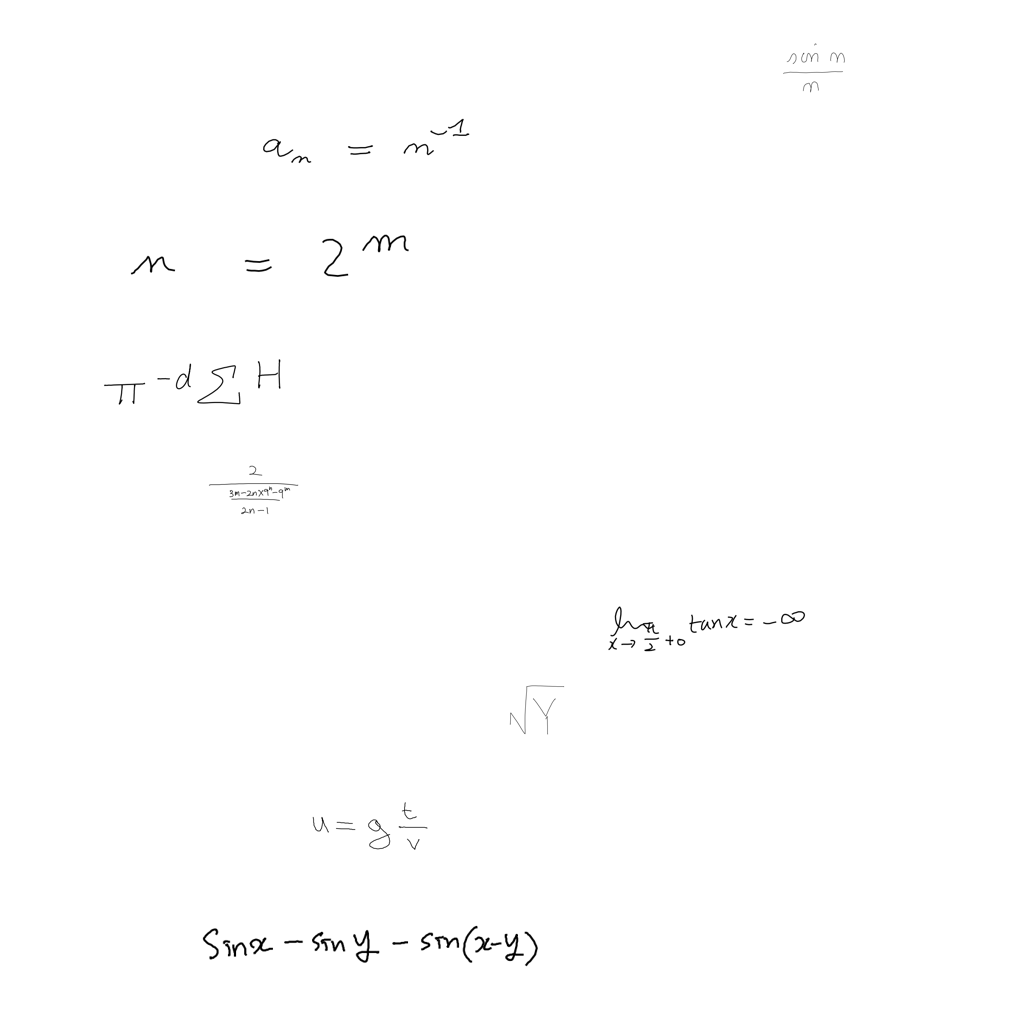 \frac{\sin n}{n}
a_n = n^{-1}
n = 2^m
\pi^{-d} \sum H
\frac{2}{\frac{3m-2n \times 9^n - 9^m}{2n-1}}
\lim_{x \to \frac{\pi}{2}+0} \tan x = -\infty
\sqrt{Y}
u = g \frac{t}{v}
\sin x - \sin y - \sin(x-y)